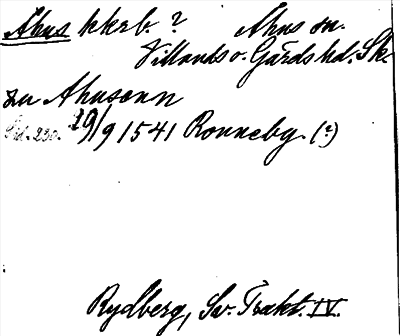 Åhus kkrb. ? Åhus sn.
Villands o. Gärds hd. Sk.
zu Ahusenn
Sid. 230. 19/9 1541 Ronneby. (?)
Rydberg, Sv. Trakt. IV.